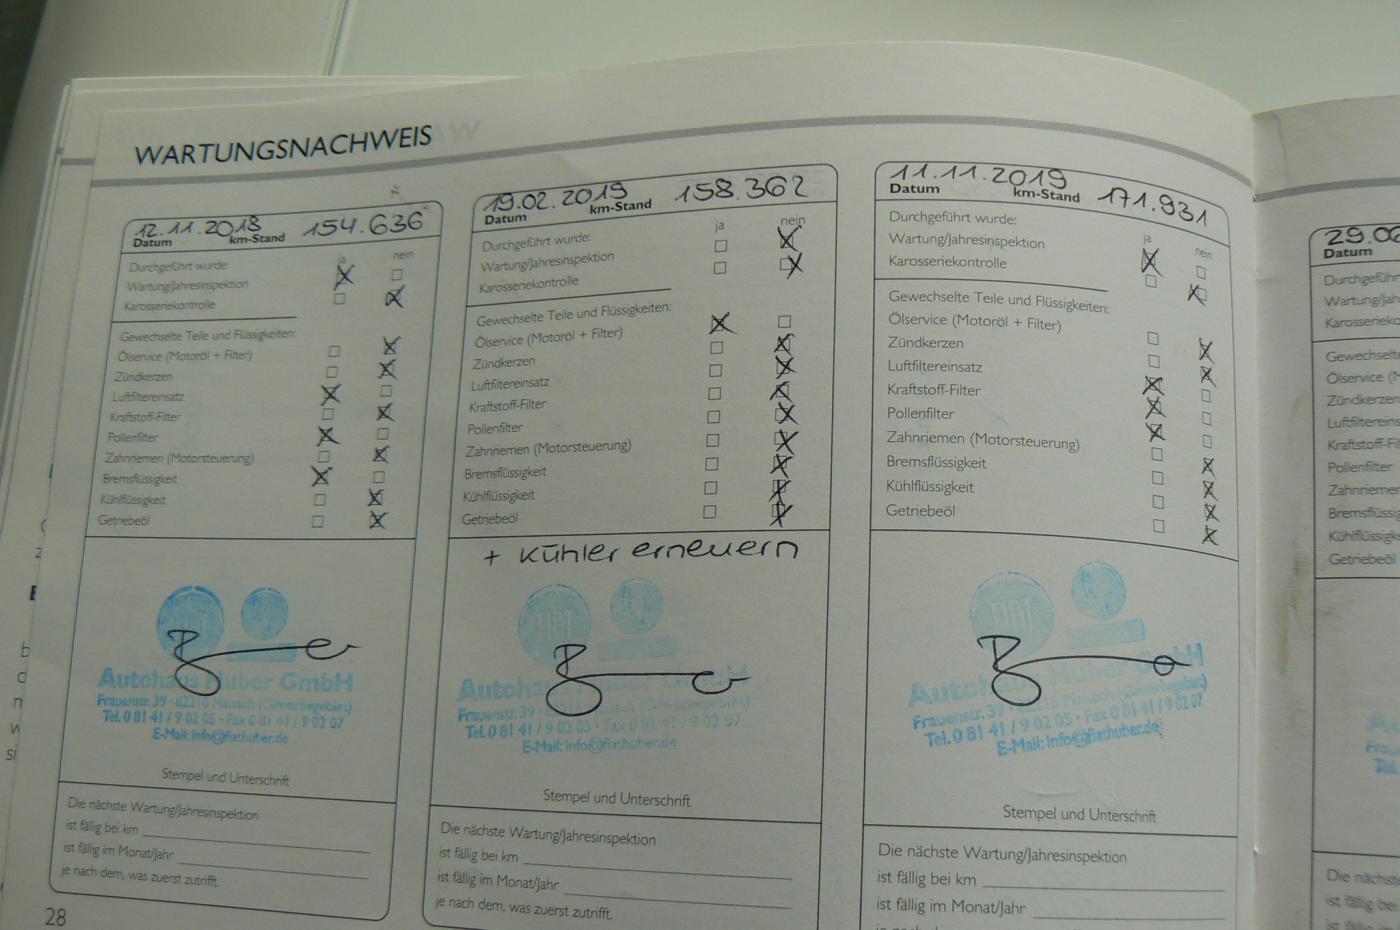 WARTUNGSNACHWEIS
12.11.2018 154.636
Datum km-Stand
Durchgeführt wurde: ja nein
Wartung/Jahresinspektion
Karosseriekontrolle
Gewechselte Teile und Flüssigkeiten:
Ölservice (Motoröl + Filter)
Zündkerzen
Luftfiltereinsatz
Kraftstoff-Filter
Pollenfilter
Zahnriemen (Motorsteuerung)
Bremsflüssigkeit
Kühlflüssigkeit
Getriebeöl
Autohaus Huber GmbH
Frauenstr. 39 · 82216 Maisach (Gewerbegebiet)
Tel. 0 81 41 / 9 02 05 · Fax 0 81 41 / 9 02 07
E-Mail: info@fiathuber.de
Stempel und Unterschrift
Die nächste Wartung/Jahresinspektion
ist fällig bei km
ist fällig im Monat/Jahr
je nach dem, was zuerst zutrifft.
28
19.02.2019 158.362
Datum km-Stand
ja nein
Durchgeführt wurde:
Wartung/Jahresinspektion
Karosseriekontrolle
Gewechselte Teile und Flüssigkeiten:
Ölservice (Motoröl + Filter)
Zündkerzen
Luftfiltereinsatz
Kraftstoff-Filter
Pollenfilter
Zahnriemen (Motorsteuerung)
Bremsflüssigkeit
Kühlflüssigkeit
Getriebeöl
+ Kühler erneuern
Autohaus Huber GmbH
Frauenstr. 39 · 82216 Maisach (Gewerbegebiet)
Tel. 0 81 41 / 9 02 05 · Fax 0 81 41 / 9 02 07
E-Mail: info@fiathuber.de
Stempel und Unterschrift
Die nächste Wartung/Jahresinspektion
ist fällig bei km
ist fällig im Monat/Jahr
je nach dem, was zuerst zutrifft.
11.11.2019 171.931
Datum km-Stand
Durchgeführt wurde:
ja nein
Wartung/Jahresinspektion
Karosseriekontrolle
Gewechselte Teile und Flüssigkeiten:
Ölservice (Motoröl + Filter)
Zündkerzen
Luftfiltereinsatz
Kraftstoff-Filter
Pollenfilter
Zahnriemen (Motorsteuerung)
Bremsflüssigkeit
Kühlflüssigkeit
Getriebeöl
Autohaus Huber GmbH
Frauenstr. 39 · 82216 Maisach (Gewerbegebiet)
Tel. 0 81 41 / 9 02 05 · Fax 0 81 41 / 9 02 07
E-Mail: info@fiathuber.de
Stempel und Unterschrift
Die nächste Wartung/Jahresinspektion
ist fällig bei km
ist fällig im Monat/Jahr
29.0
Datum
Durchgeführt
Wartung/Jah
Karosserieko
Gewechselte
Ölservice (M
Zündkerzen
Luftfiltereins
Kraftstoff-Fil
Pollenfilter
Zahnriemen
Bremsflüssig
Kühlflüssigk
Getriebeöl
Die nächste
ist fällig bei
ist fällig im